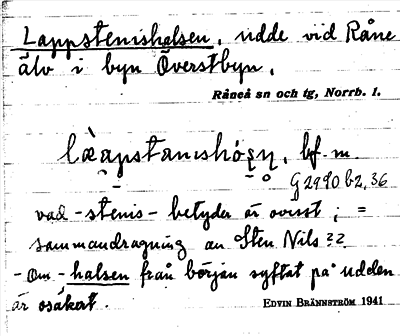 Lappstenishalsen, udde vid Råne
älv i byn Överstbyn.
Råneå sn och tg, Norrb. l.
bf. m.
G 2990 b2, 36
vad -stenis- betyder är ovisst; =
sammandragning av Sten Nils??
- Om -halsen från början syftat på udden
är osäkert.
EDVIN BRÄNNSTRÖM 1941